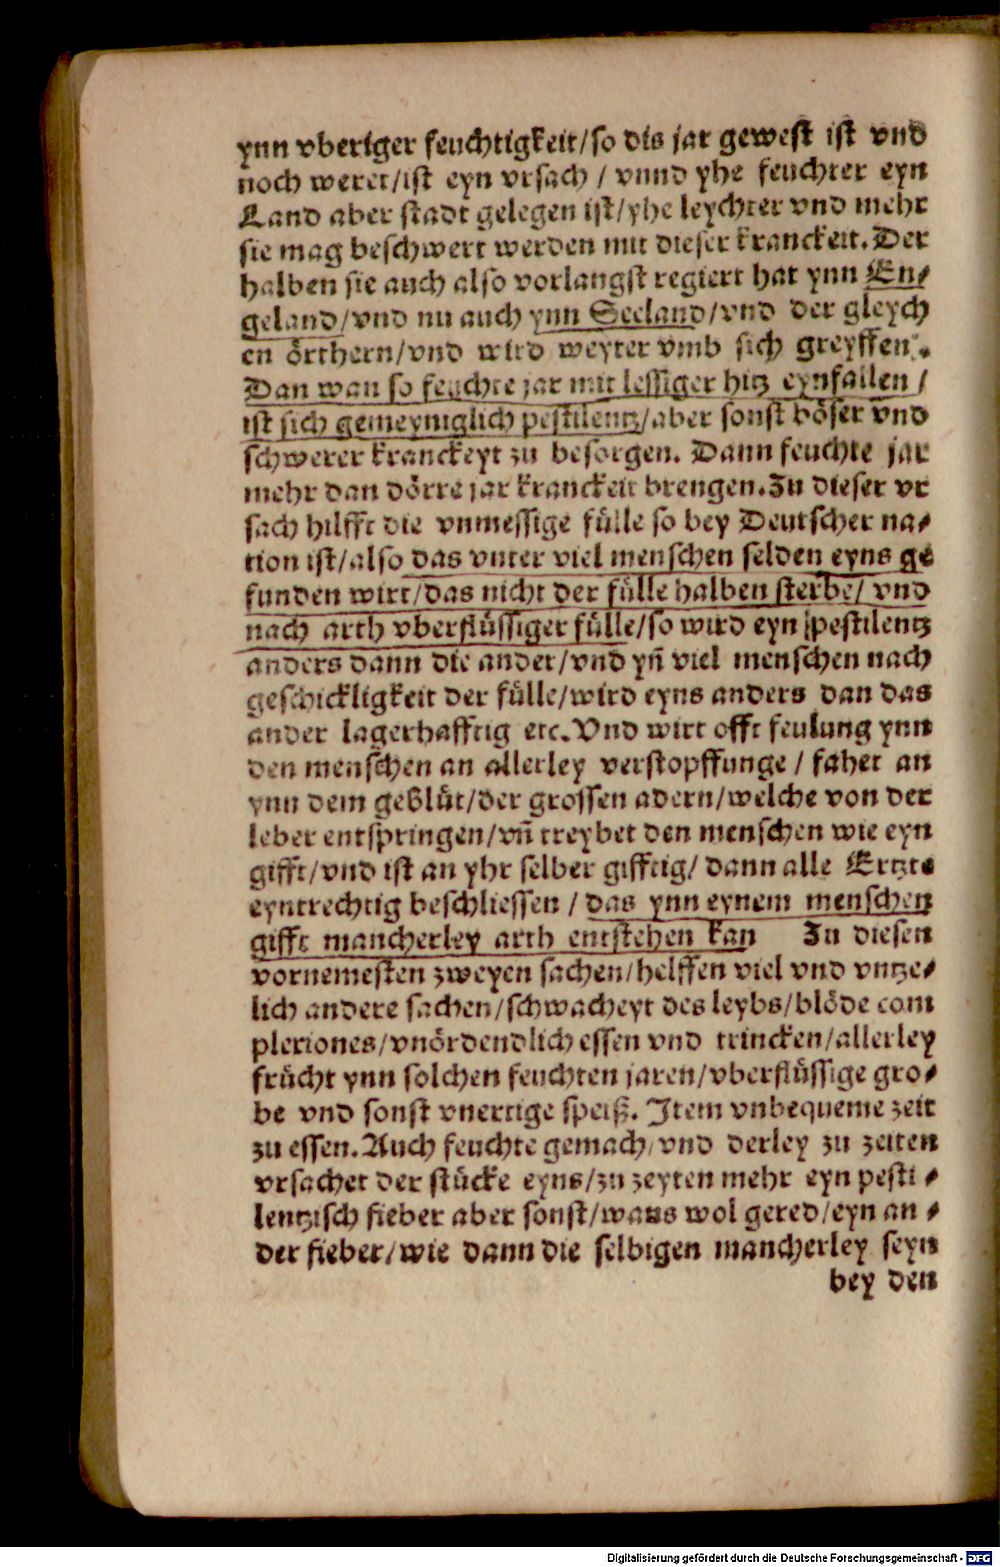 ynn vberiger feuchtigkeit/so dis jar gewest ist vnd
noch weret/ist eyn vrsach / vnnd yhe feuchter eyn
Land aber stadt gelegen ist/yhe leychter vnd mehr
sie mag beschwert werden mit dieser kranckeit. Der
halben sie auch also vorlangst regiert hat ynn En⸗
geland/vnd nu auch ynn Seeland/vnd der gleych
en örthern/vnd wird weyter vmb sich greyffen.
Dan wan so feuchte jar mit lessiger hitz eynfallen /
ist sich gemeyniglich pestilentz/aber sonst böser vnd
schwerer kranckeyt zu besorgen. Dann feuchte jar
mehr dan dörre jar kranckeit brengen. Zu dieser vr
sach hilfft die vnmessige fülle so bey Deutscher na⸗
tion ist/also das vnter viel menschen selden eyns ge
funden wirt/das nicht der fülle halben sterbe/ vnd
nach arth vberflüssiger fülle/so wird eyn pestilentz
anders dann die ander/vnd yñ viel menschen nach
geschickligkeit der fülle/wird eyns anders dan das
ander lagerhafftig etc. Vnd wirt offt feulung ynn
den menschen an allerley verstopffunge / fahet an
ynn dem geblüt/der grossen adern/welche von der
leber entspringen/vñ treybet den menschen wie eyn
gifft/vnd ist an yhr selber gifftig/ dann alle Ertzte
eyntrechtig beschliessen / das ynn eynem menschen
gifft mancherley arth entstehen kan Zu diesen
vornemesten zweyen sachen/helffen viel vnd vntze⸗
lich andere sachen/schwacheyt des leybs/blöde com
plexiones/vnördendlich essen vnd trincken/allerley
frücht ynn solchen feuchten jaren/vberflüssige gro⸗
be vnd sonst vnertige speiß. Item vnbequeme zeit
zu essen. Auch feuchte gemach/vnd derley zu zeiten
vrsachet der stücke eyns/zu zeyten mehr eyn pesti⸗
lentzisch fieber aber sonst/wans wol gered/eyn an⸗
der fieber/wie dann die selbigen mancherley seyn
bey den
Digitalisierung gefördert durch die Deutsche Forschungsgemeinschaft - DFG